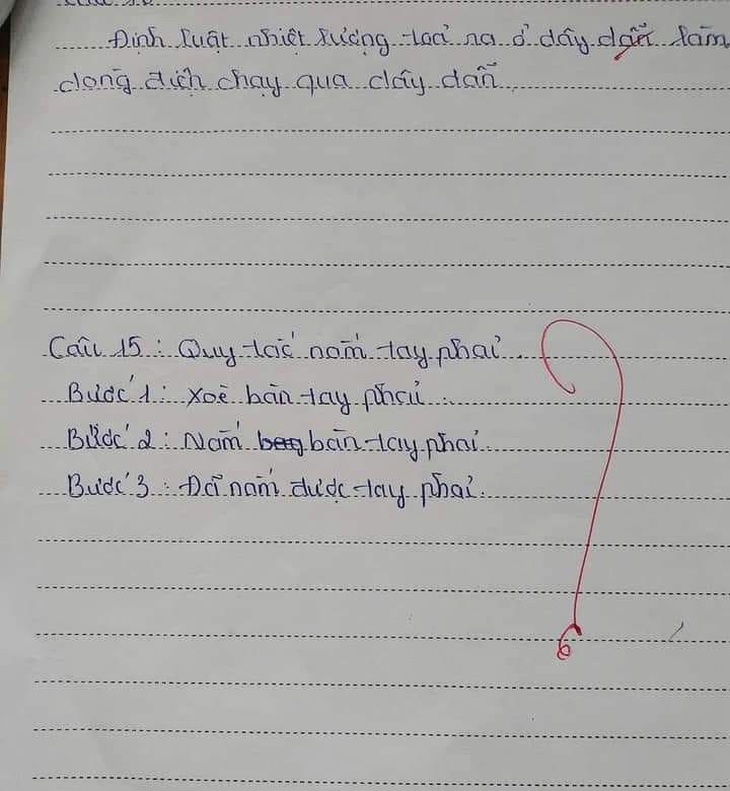 Định luật nhiệt lượng toả ra ở dây dẫn làm
dòng điện chạy qua dây dẫn
Câu 15: Quy tắc nắm tay phải.
Bước 1: Xoè bàn tay phải
Bước 2: Nắm bàn tay phải
Bước 3: Đã nắm được tay phải.